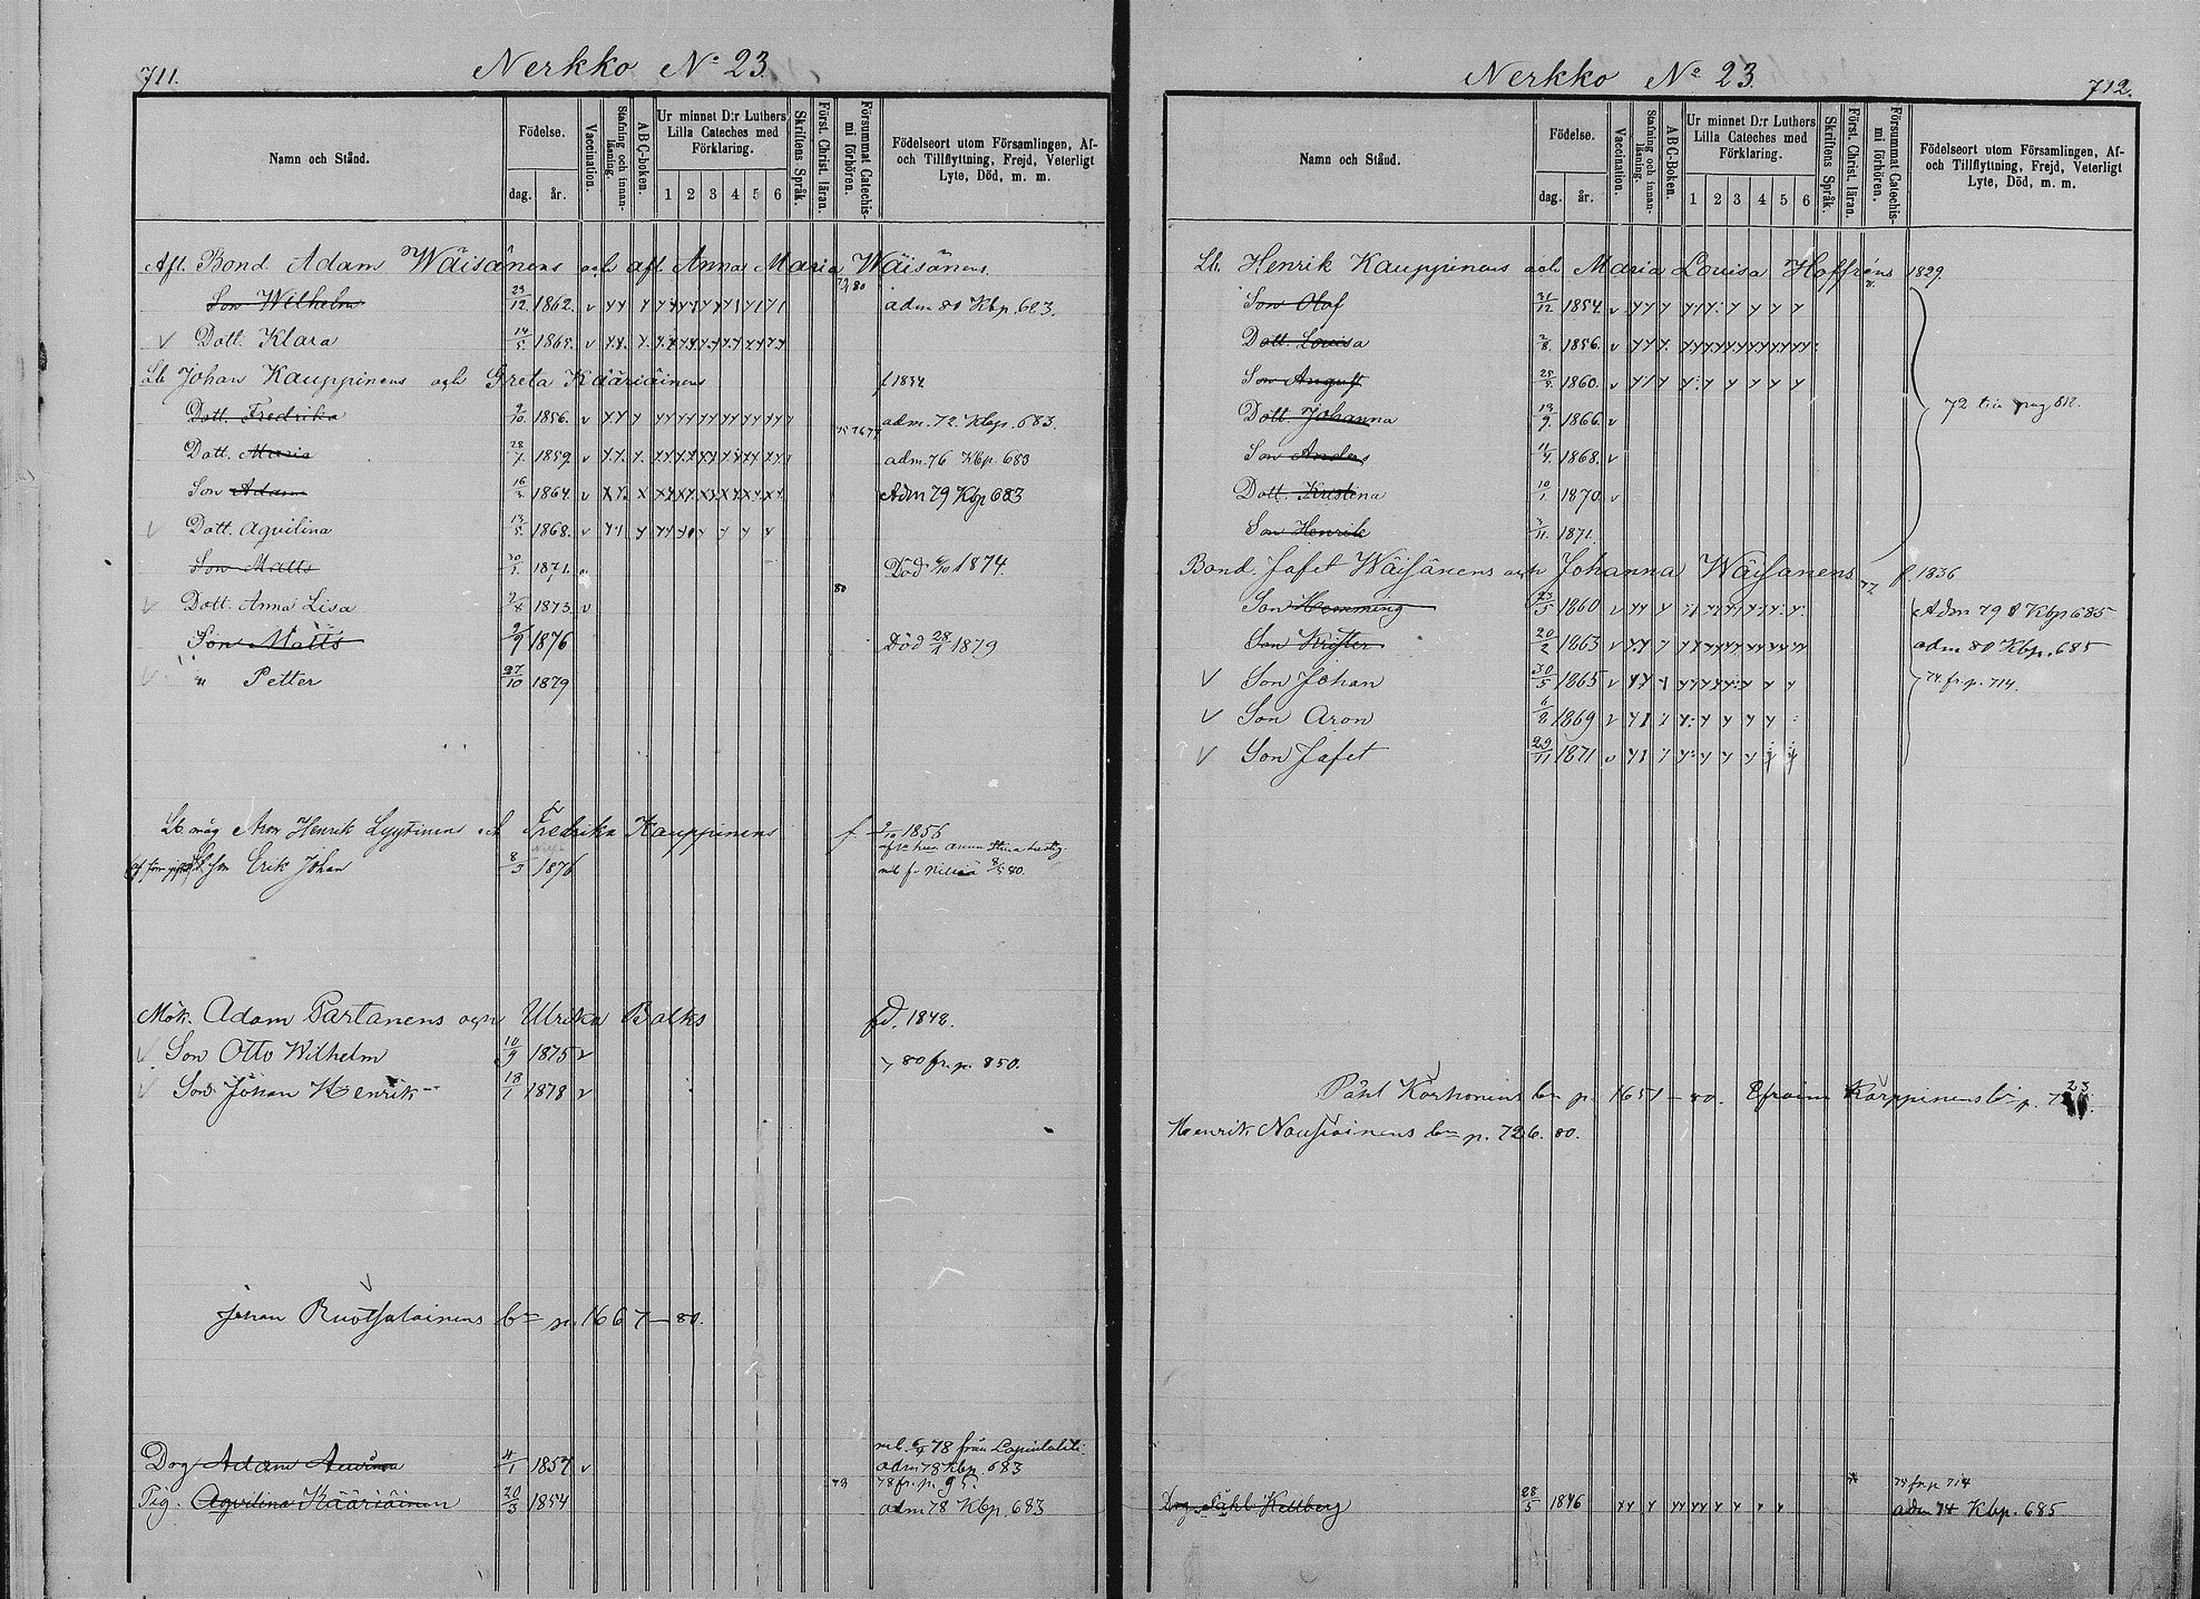 711.
Nerkko No 23.
Namn och Stånd.
Födelse.
dag. år.
Vaccination.
Stafning och innan-läsning.
ABC-boken.
Ur minnet D:r Luthers Lilla Cateches med Förklaring.
1 2 3 4 5 6
Skriftens Språk.
Först. Christ. läran.
Försummat Catechis-mi förhören.
Födelseort utom Församlingen, Af- och Tillflyttning, Frejd, Veterligt Lyte, Död, m. m.
Afl. Bond. Adam Wäisänens och afl. Anna Maria Wäisänens.
Son Wilhelm 23/12 1862. v adm 80 Kbp. 683.
v Dott. Klara 14/5 1865. v
Lb Johan Kauppinens och Greta Kääriäinens f 1834
Dott. Fredrika 9/10 1856. v adm. 72. Kbp. 683.
Dott. Maria 28/7 1859. v adm. 76 Kbp. 683
Son Adam 16/3 1864. v Adm 79 Kbp 683
v Dott. Aqvilina 13/5 1868. v
Son Matts 30/1 1871. Död 6/10 1874.
v Dott. Anna Lisa 2/4 1873. v
Son Matts 9/9 1876 Död 28/1 1879
v " Petter 27/10 1879
Lb. måg Aron Henrik Lyytinens och Fredrika Kauppinens f. 9/10 1856
son Erik Johan 8/3 1876
Mök. Adam Partanens och Ulrika Balks fd. 1842.
v Son Otto Wilhelm 10/9 1875 v 80 fr. p. 850.
v Son Johan Henrik 18/1 1878 v
Johan Ruotsalainens bn p. 1667 - 80.
inb. 6/4 78 från Lapinlahti.
Drg Adam 4/1 1857 v adm 78 Kbp. 683
78 fr. p. 95.
Pig. Aqvilina Kääriäinen 20/3 1854 adm 78 Kbp. 683
712.
Nerkko No 23.
Namn och Stånd.
Födelse.
dag. år.
Vaccination.
Stafning och innan-läsning.
ABC-Boken.
Ur minnet D:r Luthers Lilla Cateches med Förklaring.
1 2 3 4 5 6
Skriftens Språk.
Först. Christ. läran.
Försummat Catechis-mi förhören.
Födelseort utom Församlingen, Af- och Tillflyttning, Frejd, Veterligt Lyte, Död, m. m.
Lb. Henrik Kauppinens och Maria Lovisa Hoffréns 1829.
Son Olof 31/12 1854. v
Dott. Lovisa 2/8. 1856. v
Son August 25/5. 1860. v
Dott. Johanna 13/9. 1866. v 72 till pag 812.
Son Anders 11/4. 1868. v
Dott. Kristina 10/1 1870. v
Son Henrik 3/11. 1871.
Bond. Jafet Wäisänens och Johanna Wäisänens f. 1836
Son Hemming 23/5 1860 v Adm 79 Kbp 685
Son Krister 20/2 1863 v adm 80 Kbp. 685
v Son Johan 30/5 1865 v 74. fr. p. 714.
v Son Aron 6/8 1869 v
v Son Jafet 29/11 1871 v
Påhl Korhonens bn p. 1651 - 80. Efraim Karppinens bn p. 723
Henrik Nousiainens bn p. 726. 80.
74 fr p 714
Drg Påhl Kellberg 28/5 1846 adm 74 Kbp. 685